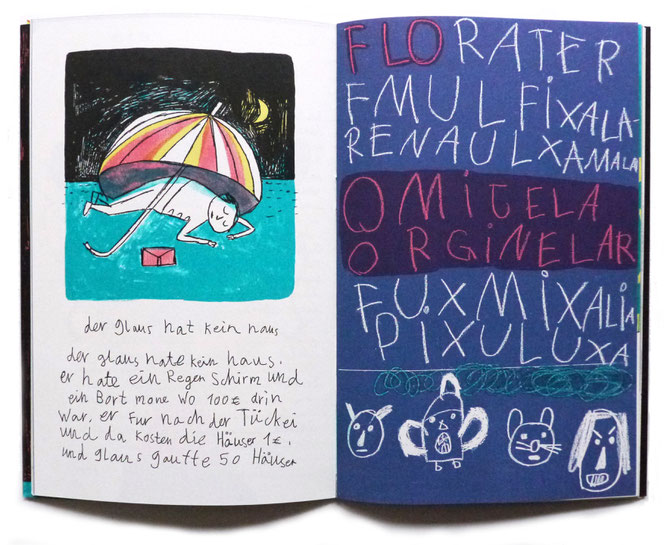 der glaus hat kein haus
der glaus hate kein haus.
er hate ein Regen Schirm und
ein Bort mone wo 100€ drin
war. er Fur nach der Tückei
und da kosten die Häuser 1€.
und glaus gautte 50 Häuser
FLORATER
FMULFIXALA-
RENAULXAMALA
OMITELA
ORGINELAR
FU.XMIXALIA
PIXULUXA